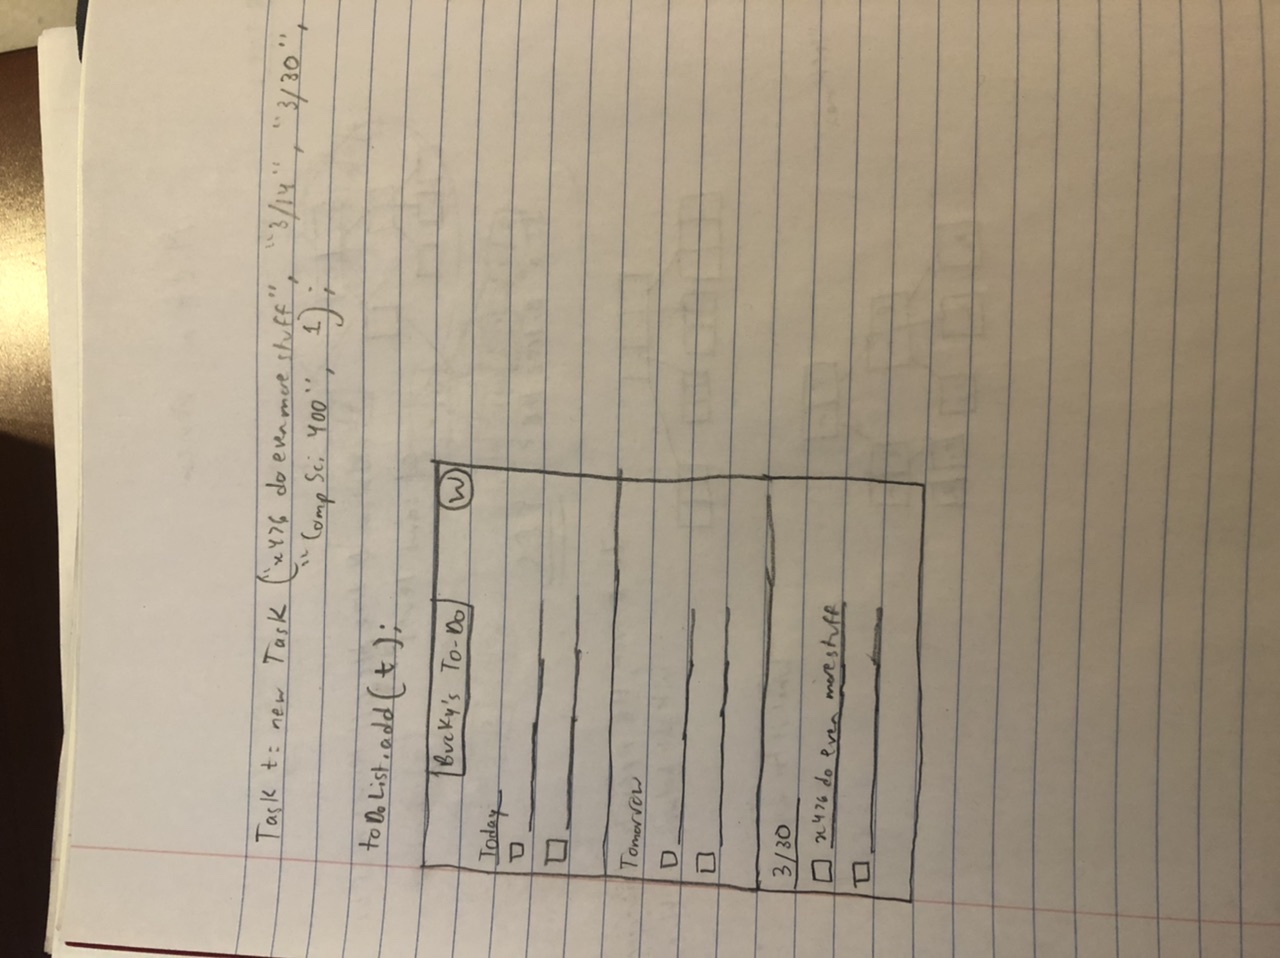 Task t = new Task ("x476 do even more stuff", "3/14", "3/30",
"Comp Sci 400", 1);
toDoList.add(t);
Bucky's To-Do W
Today
Tomorrow
3/30
x476 do even more stuff